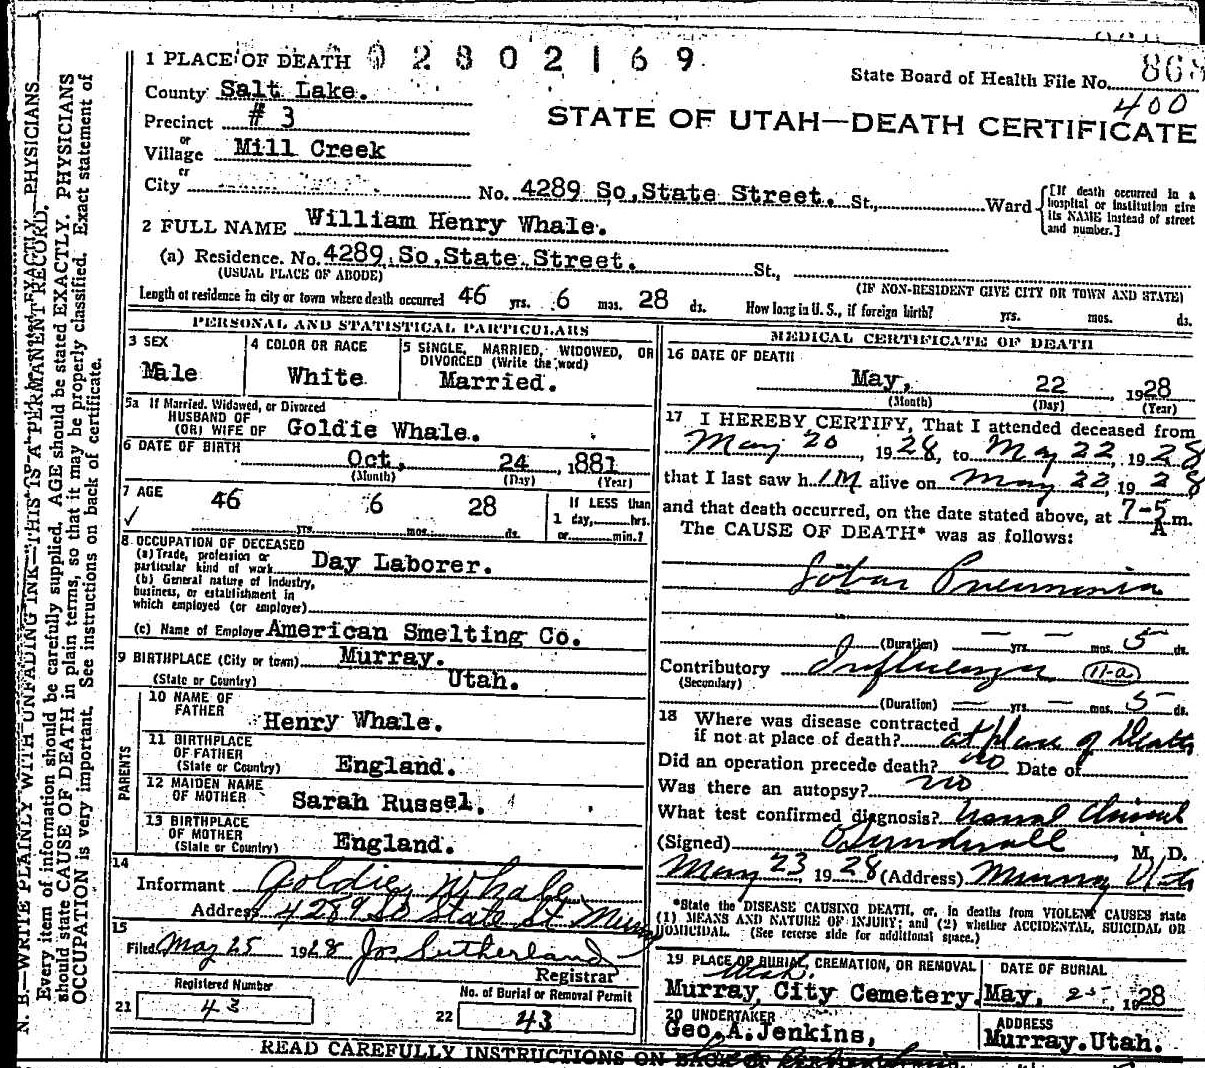 1 PLACE OF DEATH 02802169
State Board of Health File No. 868
400
County Salt Lake.
STATE OF UTAH—DEATH CERTIFICATE
Precinct # 3
or
Village Mill Creek
or
City No. 4289 So,State Street. St., Ward
[If death occurred in a hospital or institution give its NAME instead of street and number.]
2 FULL NAME William Henry Whale.
(a) Residence. No. 4289 So,State Street. St.,
(USUAL PLACE OF ABODE) (IF NON-RESIDENT GIVE CITY OR TOWN AND STATE)
Length of residence in city or town where death occurred 46 yrs. 6 mos. 28 ds. How long in U. S., if foreign birth? yrs. mos. ds.
PERSONAL AND STATISTICAL PARTICULARS
3 SEX
Male
4 COLOR OR RACE
White
5 SINGLE, MARRIED, WIDOWED, OR
DIVORCED (Write the word)
Married.
5a If Married, Widowed, or Divorced
HUSBAND OF
(OR) WIFE OF Goldie Whale.
6 DATE OF BIRTH
Oct, 24, 1881
(Month) (Day) (Year)
7 AGE
46 yrs. 6 mos. 28 ds.
If LESS than
1 day, hrs.
or min.?
8 OCCUPATION OF DECEASED
(a) Trade, profession or
particular kind of work Day Laborer.
(b) General nature of Industry,
business, or establishment in
which employed (or employer)
(c) Name of Employer American Smelting Co.
9 BIRTHPLACE (City or town) Murray.
(State or Country) Utah.
PARENTS
10 NAME OF
FATHER Henry Whale.
11 BIRTHPLACE
OF FATHER
(State or Country) England.
12 MAIDEN NAME
OF MOTHER Sarah Russel.
13 BIRTHPLACE
OF MOTHER
(State or Country) England.
14
Informant Goldie Whale
Address 4289 So State St. Murray
15
Filed May 25 1928 Jos Sutherland
Registrar
21 Registered Number
43
22 No. of Burial or Removal Permit
43
MEDICAL CERTIFICATE OF DEATH
16 DATE OF DEATH
May, 22, 1928
(Month) (Day) (Year)
17 I HEREBY CERTIFY, That I attended deceased from
May 20, 1928, to May 22, 1928
that I last saw him alive on May 22, 1928
and that death occurred, on the date stated above, at 7-5 A m.
The CAUSE OF DEATH* was as follows:
Lobar Pneumonia
(Duration) — yrs. — mos. 5 ds.
Contributory Influenza 11-a
(Secondary)
(Duration) — yrs. — mos. 5 ds.
18 Where was disease contracted
if not at place of death? at place of Death
Did an operation precede death? no Date of
Was there an autopsy? no
What test confirmed diagnosis? usual Clinical
(Signed) , M. D.
May 23, 1928 (Address) Murray Utah
*State the DISEASE CAUSING DEATH, or, in deaths from VIOLENT CAUSES state
(1) MEANS AND NATURE OF INJURY; and (2) whether ACCIDENTAL, SUICIDAL OR
HOMICIDAL. (See reverse side for additional space.)
19 PLACE OF BURIAL, CREMATION, OR REMOVAL
Utah.
Murray City Cemetery.
DATE OF BURIAL
May, 25 1928
20 UNDERTAKER
Geo.A.Jenkins,
ADDRESS
Murray.Utah.
READ CAREFULLY INSTRUCTIONS ON BACK OF
N. B.—WRITE PLAINLY WITH UNFADING INK—THIS IS A PERMANENT RECORD.
Every item of information should be carefully supplied. AGE should be stated EXACTLY. PHYSICIANS
should state CAUSE OF DEATH in plain terms, so that it may be properly classified. Exact statement of
OCCUPATION is very important. See instructions on back of certificate.